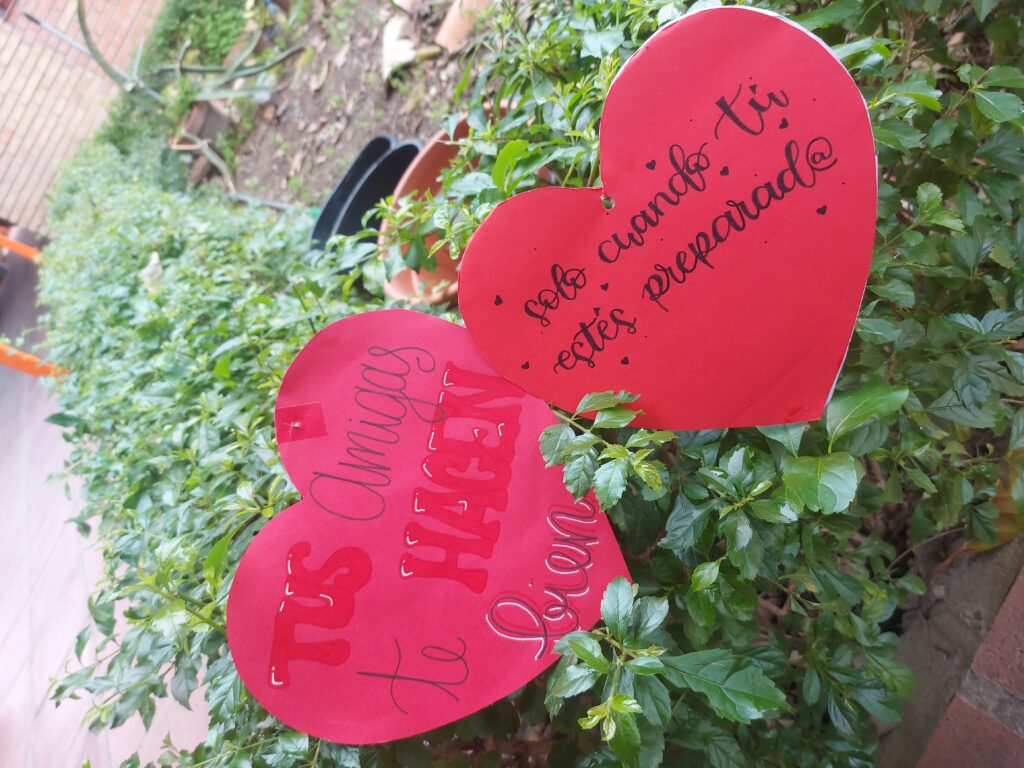 solo cuando tú
estés preparad@
TUS Amigas
te HACEN
bien